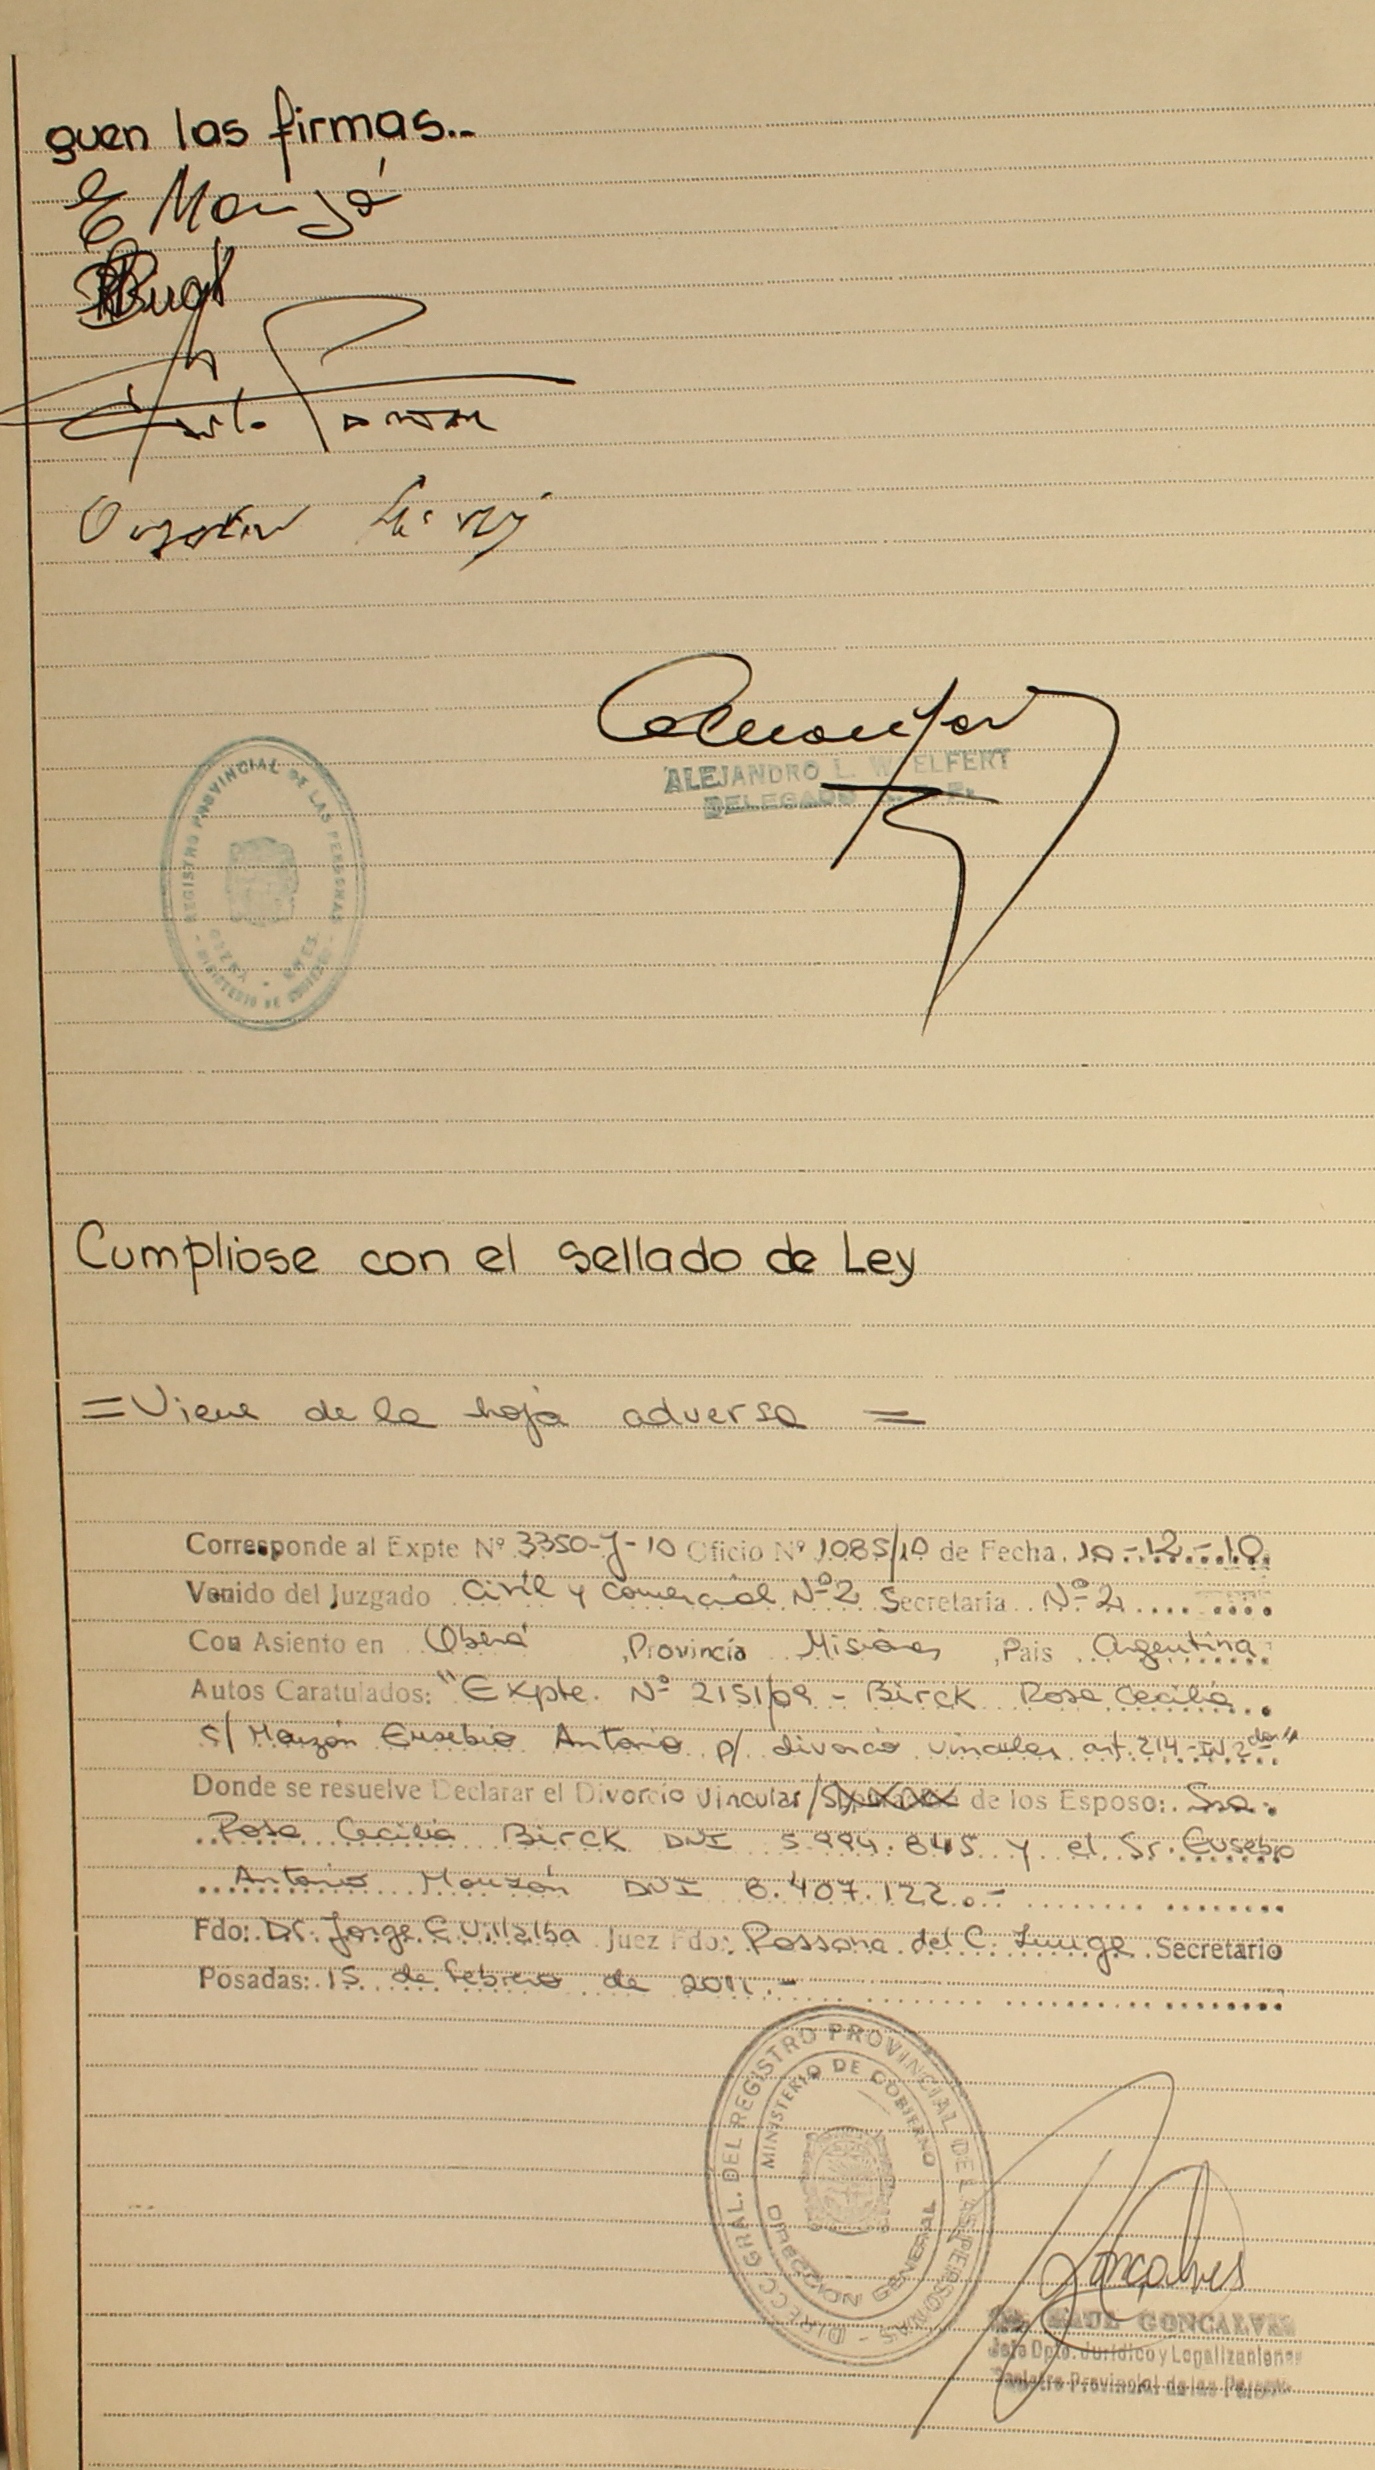 guen las firmas..
REGISTRO PROVINCIAL DE LAS PERSONAS
MINISTERIO DE GOBIERNO
ALEJANDRO L. WOELFERT
DELEGADO
Cumpliose con el sellado de Ley
= Viene de la hoja adversa =
Corresponde al Expte Nº 3350-J-10 Oficio Nº 1085/10 de Fecha 10-12-10
Venido del Juzgado Civil y Comercial Nº 2 Secretaria Nº 2
Con Asiento en Oberá, Provincia Misiones, Pais Argentina
Autos Caratulados: "Expte. Nº 2151/09 - Birck Rosa Cecilia
c/ Monzón Eusebio Antonio p/ divorcio vincular art. 214 - IN 2do"
Donde se resuelve Declarar el Divorcio Vincular / de los Esposo: Sra.
Rosa Cecilia Birck DNI 5.994.845 y el Sr. Eusebio
Antonio Monzón DNI 8.407.122.-
Fdo: Dr. Jorge E Villalba Juez Fdo: Rossana del C. Secretario
Posadas: 15 de febrero de 2011.-
DIRECC. GRAL. DEL REGISTRO PROVINCIAL DE LAS PERSONAS
MINISTERIO DE GOBIERNO
DIRECCION GENERAL
Goncalves
RAUL GONCALVES
Jefe Dpto. Jurídico y Legalizaciones
Registro Provincial de las Personas